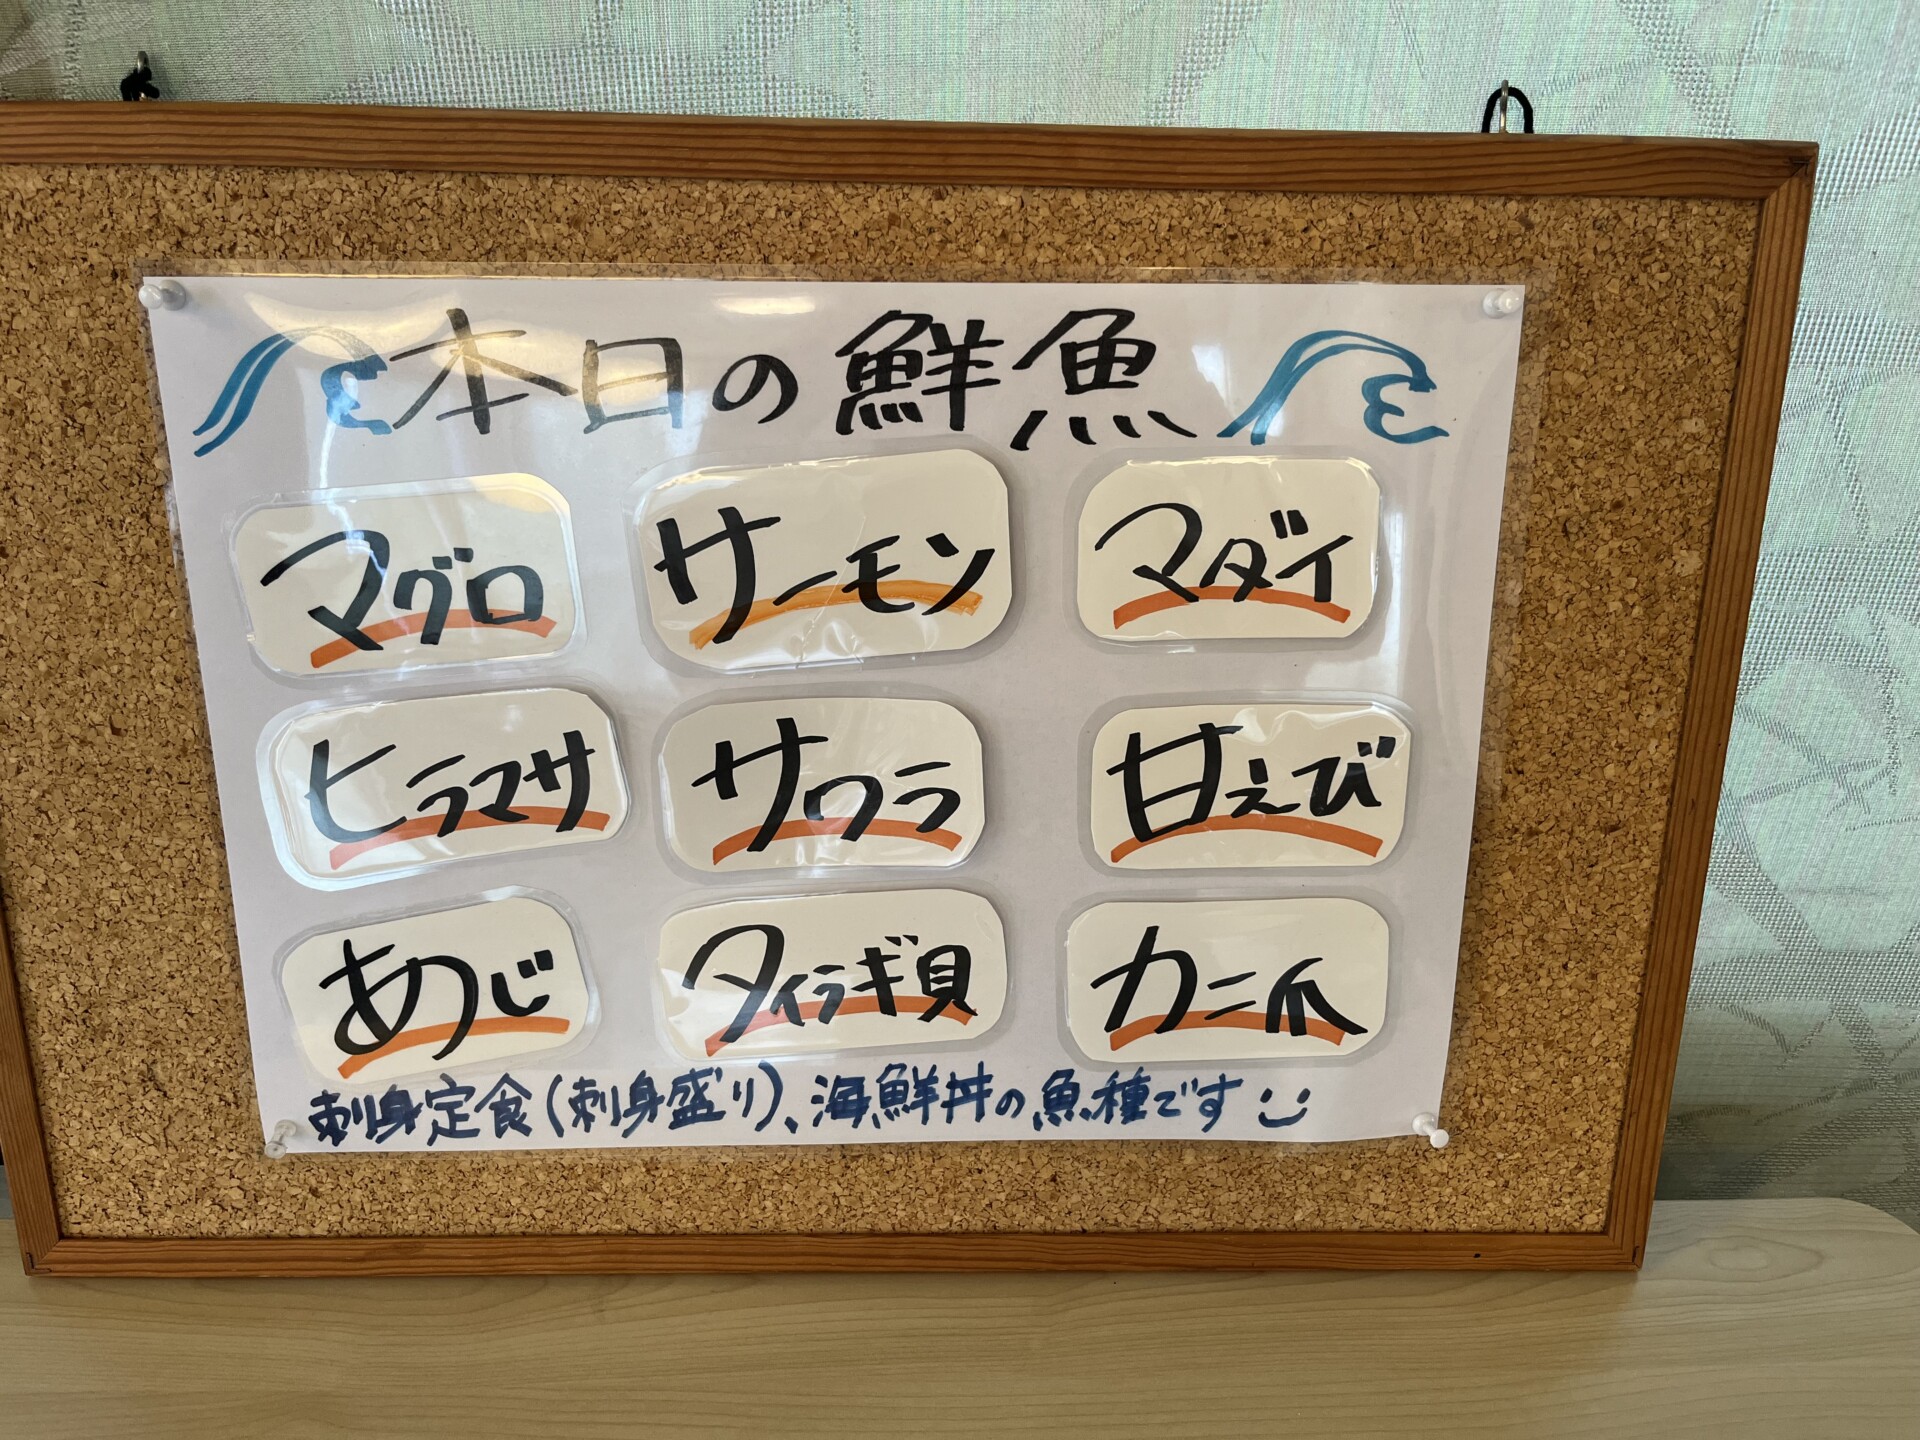 本日の鮮魚
マグロ サーモン マダイ
ヒラマサ サワラ 甘えび
あじ タイラギ貝 カニ爪
刺身定食(刺身盛り)、海鮮丼の魚種です